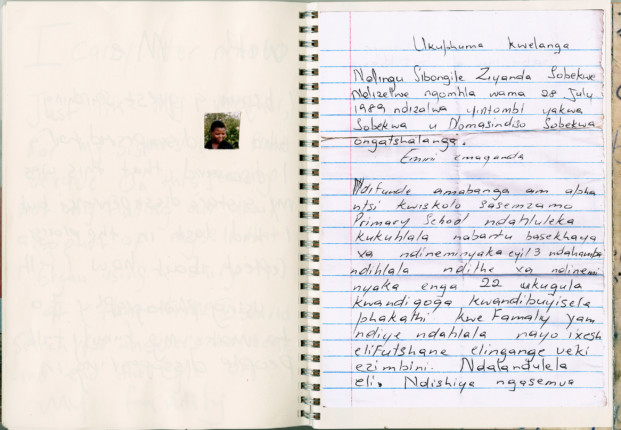 Ukuphuma kwelanga
Ndingu Sibongile Ziyanda Sobekwe
Ndizelwe ngomhla wama 28 July
1989 ndizalwa yintombi yakwa
Sobekwa u Nomasindiso Sobekwa
ongatshatanga.
Emini emaqanda
Ndifunde amabanga am apha
ntsi kwiskolo sasemzamo
Primary School ndahluleka
kukuhlala nabantu basekhaya
xa ndineminyaka eyi13 ndahamba
ndihlala ndilhe xa ndinemi
nyaka enga 22 ukugula
kwandigoga kwandibuyisela
phakathi kwe Famaly yam
ndiye ndahlala nayo ixesh
elifutshane elingange veki
ezimbini. Ndalandulela
eli. Ndishiye ngasemva